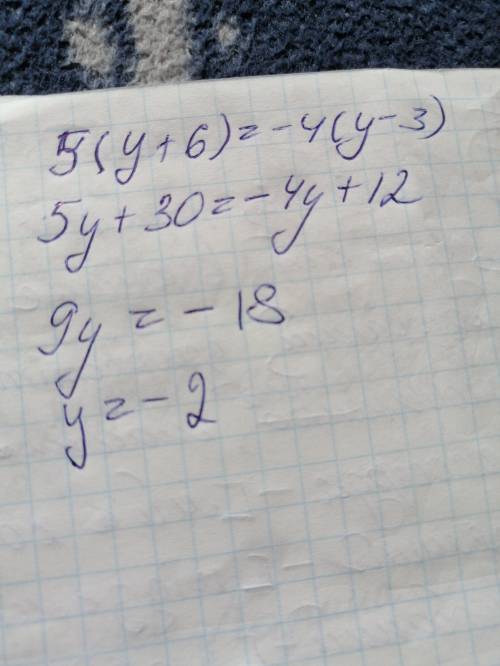 5(y+6)=-4(y-3)
5y+30=-4y+12
9y=-18
y=-2